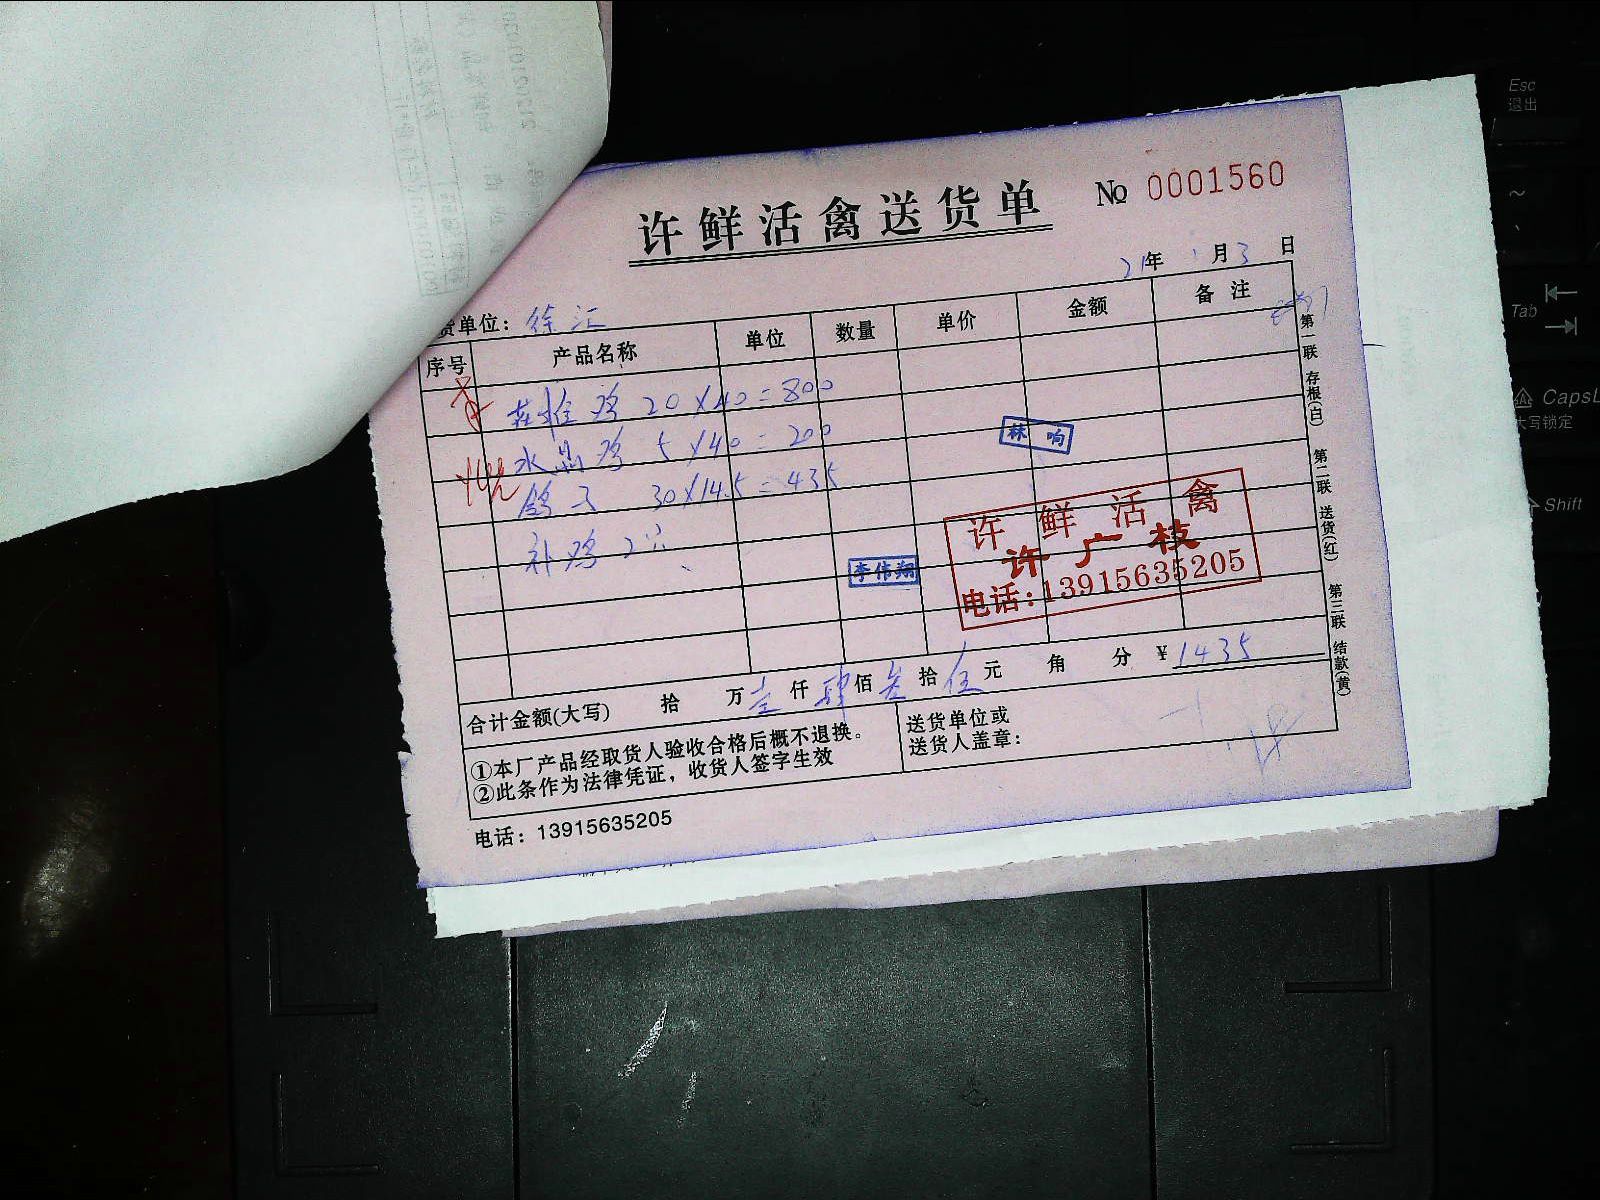 许鲜活禽送货单
№ 0001560
21年1月3日
货单位：徐汇
序号 产品名称 单位 数量 单价 金额 备注
鸡 20×40=800
水晶鸡 5×40=200
鸽子 30×14.5=435
补鸡2只
林响
李伟翔
许鲜活禽
许广枝
电话：13915635205
合计金额(大写) 拾 万壹仟肆佰叁拾伍元 角 分 ¥1435
①本厂产品经取货人验收合格后概不退换。
②此条作为法律凭证，收货人签字生效
送货单位或
送货人盖章：
电话：13915635205
第一联 存根(白) 第二联 送货(红) 第三联 结款(黄)
Esc
退出
~
Tab
CapsL
大写锁定
Shift